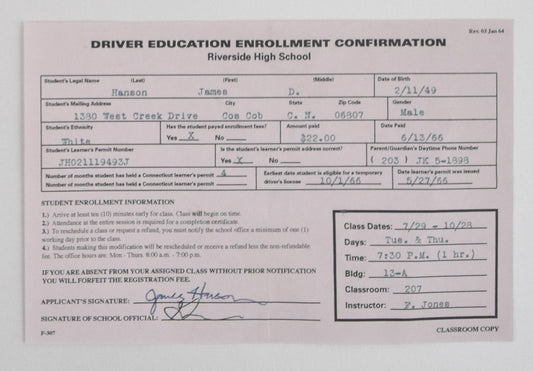 Rev. 03 Jan 64
DRIVER EDUCATION ENROLLMENT CONFIRMATION
Riverside High School
Student's Legal Name (Last) (First) (Middle) Date of Birth
Hanson James D. 2/11/49
Student's Mailing Address City State Zip Code Gender
1380 West Creek Drive Cos Cob C. N. 06807 Male
Student's Ethnicity Has the student payed enrollment fees? Amount paid Date Paid
White Yes X No $22.00 6/13/66
Student's Learner's Permit Number Is the student's learner's permit address correct? Parent/Guardian's Daytime Phone Number
JH021119493J Yes X No ( 203 ) JK 5-1898
Number of months student has held a Connecticut learner's permit 4 Earliest date student is eligible for a temporary Date learner's permit was issued
Number of months student has held a Connecticut learner's permit driver's license 10/1/66 5/27/66
STUDENT ENROLLMENT INFORMATION
1.) Arrive at least ten (10) minutes early for class. Class will begin on time.
2.) Attendance at the entire session is required for a completion certificate.
3.) To reschedule a class or request a refund, you must notify the school office a minimum of one (1)
working day prior to the class.
4.) Students making this modification will be rescheduled or receive a refund less the non-refundable
fee. The office hours are: Mon - Thurs 8:00 a.m. - 7:00 p.m.
IF YOU ARE ABSENT FROM YOUR ASSIGNED CLASS WITHOUT PRIOR NOTIFICATION
YOU WILL FORFEIT THE REGISTRATION FEE.
APPLICANT'S SIGNATURE: James Hanson
SIGNATURE OF SCHOOL OFFICIAL:
F-307
Class Dates: 7/29 - 10/28
Days: Tue. & Thu.
Time: 7:30 P.M. (1 hr.)
Bldg: 13-A
Classroom: 207
Instructor: F. Jones
CLASSROOM COPY